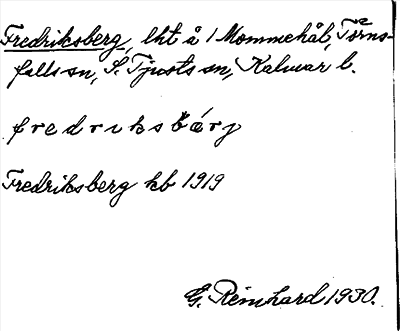 Fredriksberg, lht å 1 Mommehål, Törns-
falls sn, S. Tjusts sn, Kalmar l.
fredriksbärj
Fredriksberg kb 1919
G. Reinhard 1930.